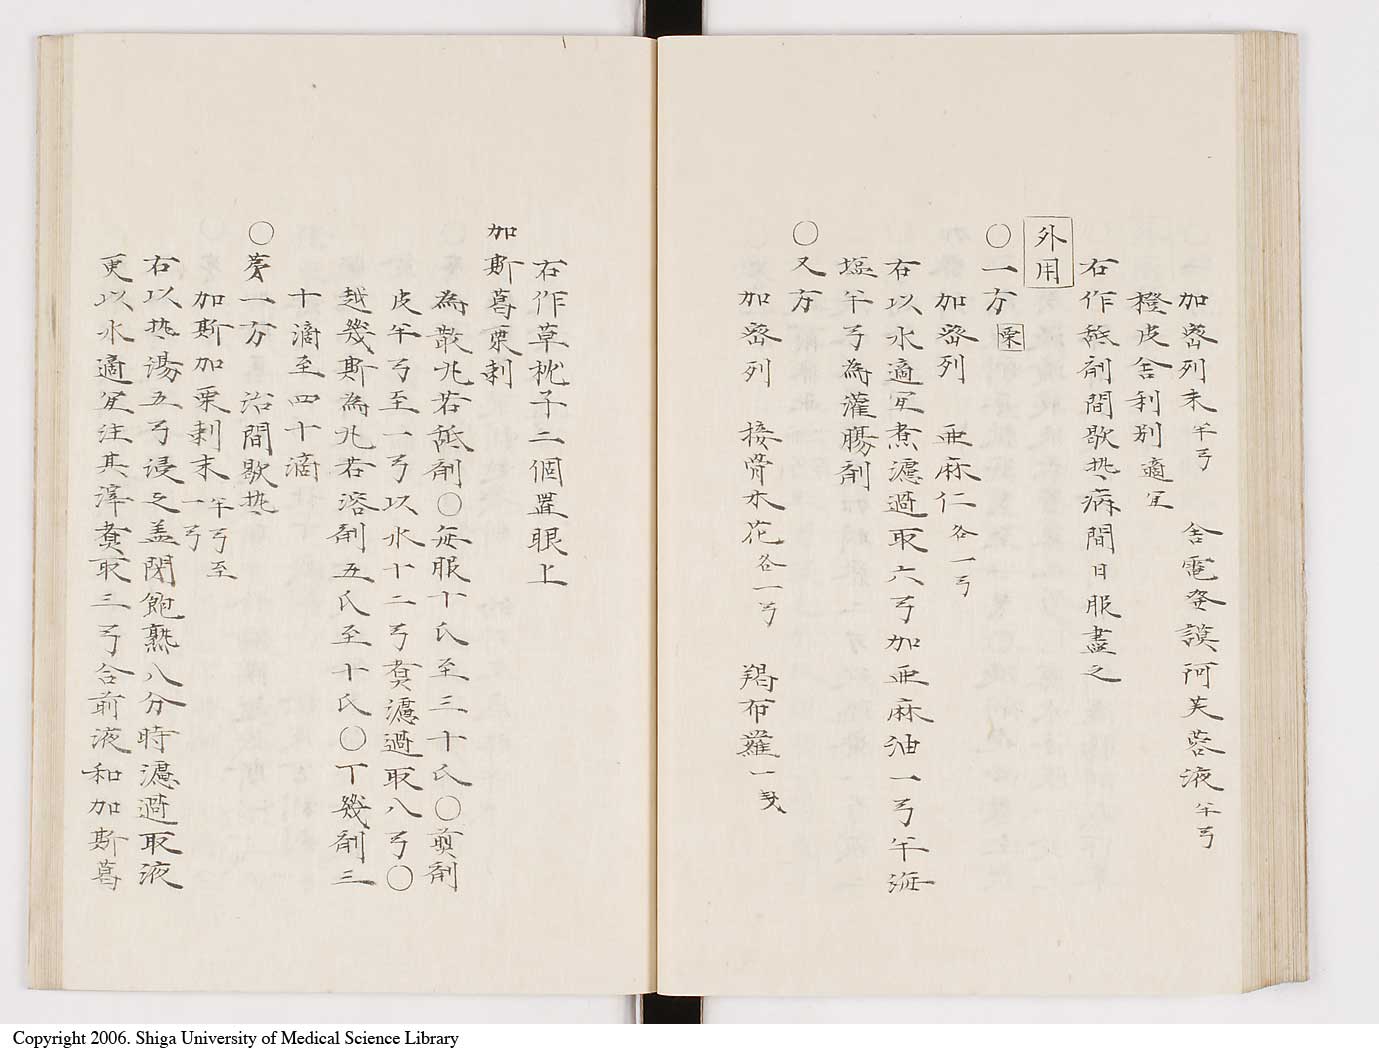 加密列末半弓 舎電安謨阿芙蓉液半弓
橙皮舎利別適宜
右作舐剤間歇热病間日服盡之
外用
〇一方 栗
加密列 亜麻仁各一弓
右以水適宜煮濾過取六弓加亜麻油一弓半海
塩半弓為灌腸剤
〇又方
加密列 接骨木花各一弓 羯布羅一戔
右作草枕子二個置眼上
加斯葛栗剌
為散兆若舐剤〇毎服十氏至三十氏〇煎剤
皮半弓至一弓以水十二弓煑濾過取八弓〇
越幾斯為兆若溶剤五氏至十氏〇丁幾剤三
十滴至四十滴
〇一方 治間歇热
加斯加栗剌末半弓至一弓
右以热湯五弓浸之盖閉飽熟八分時濾過取液
更以水適宜注其滓煑取三弓合前液和加斯葛
Copyright 2006. Shiga University of Medical Science Library